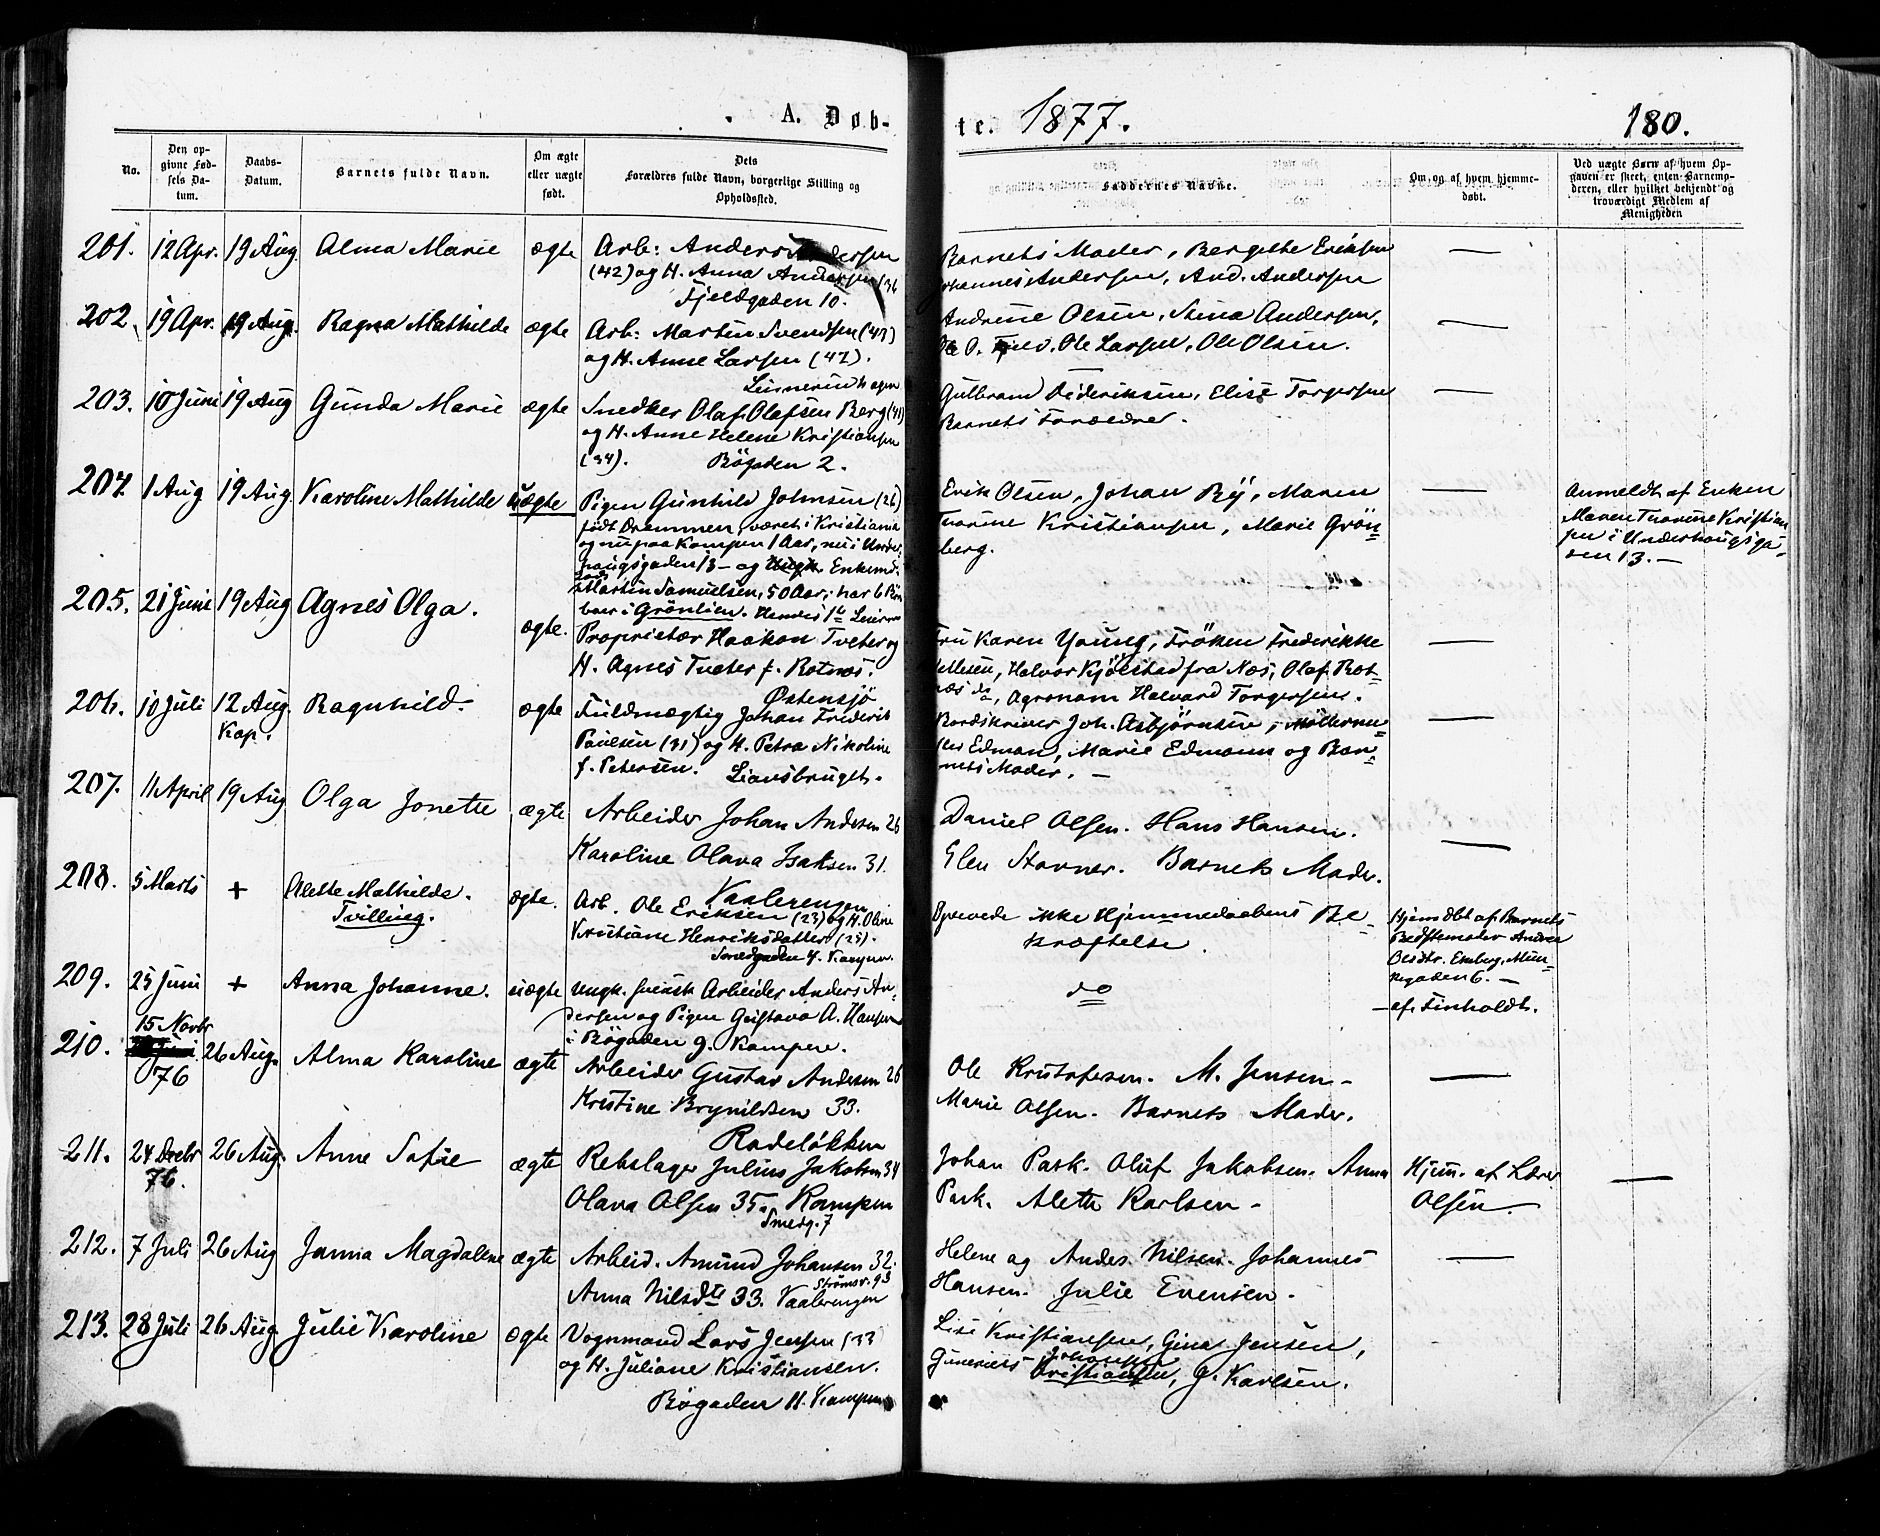 A. Døb-
te. 1877. 180.
No.
Den op-
givne Fød-
sels Da-
tum.
Daabs-
Datum.
Barnets fulde Navn.
Om ægte
eller uægte
født.
Dets
Forældres fulde Navn, borgerlige Stilling og
Opholdssted.
Faddernes Navne.
Om og af hvem hjemme-
døbt.
Ved uægte Børn af hvem Op-
gaven er skeet, enten Barnemo-
deren, eller hvilket bekjendt og
troværdigt Medlem af
Menigheden
201. 12 Apr. 19 Aug Alma Marie ægte Arb: Anders Andersen
(42) og H. Anna Andersen (36
Fjeldgaden 10.
Barnets Moder, Bergethe Eriksen
Johannes Andersen, And. Andersen
—
202. 19 Apr. 19 Aug. Ragna Mathilde ægte Arb: Martin Svendsen (43)
og H. Anne Larsen (42).
Leirnerudhagen
Andrine Olsen, Stina Andersen,
Ole O. Ole Larsen, Ole Olsen.
—
203. 10 Juni 19 Aug Gunda Marie ægte Snedker Olaf Olafsen Berg (41)
og H. Anne Helene Kristiansen
(34). Bögaden 2.
Gulbrand Dideriksen, Elise Torgersen
Barnets Forældre.
—
204. 1 Aug 19 Aug. Karoline Mathilde uægte Pigen Gunhild Johnsen (26)
født Drammen, været i Kristiania
og nu paa Kampen 1 Aar, nu i Under-
haugsgaden 13 — og Enkemd.
Martin Samuelsen, 50 Aar, har 6 Bör
boer i Grönlien. Hendes 1ste
Erik Olsen, Johan By, Maren
Thorine Kristiansen, Marie Grön-
berg.
—
Anmeldt af Enken
Maren Thorine Kristian-
sen i Underhaugsga-
den 13. —
205. 21 Juni 19 Aug Agnes Olga. ægte. Proprietær Haakon Tveter og
H. Agnes Tveter f. Rotnes.
Østensjö
Fru Karen Young, Fröken Frederikke
Halvor Kjölstad fra Næs, Olaf Rot-
næs do, Agronom Halvard Torgersen.
—
206. 10 Juli 12 Aug.
Kap.
Ragnhild. ægte Fuldmægtig Johan Frederik
Paulsen (31) og H. Petra Nikoline
f. Petersen. Liansbruget.
Joh. Asbjörnsen,
Edman, Marie Edmann og Bar-
nets Moder. —
—
207. 11 April 19 Aug Olga Jonette ægte Arbeider Johan Andersen 26
Karoline Olava Isaksen 31.
Vaalerengen
Daniel Olsen. Hans Hansen.
Elen Stovner. Barnets Moder.
—
208. 5 Marts + Alette Mathilde.
Tvilling.
ægte. Arb. Ole Eriksen (23) og H. Oline
Kristiane Henriksdatter (25).
Smedgaden 4.
Prøvede ikke Hjemmedaabens Be-
kræftelse.
Hjemdbt af Barnets
Bedstemoder
Olsdtr. Ekeberg, Mun-
kegaden 6. —
209. 25 Juni + Anna Johanne. uægte ungk. svensk Arbeider Anders An-
dersen og Pigen Gustava A. Hansen
i Bögaden 9. Kampen.
do
— af Finholdt.
210. 15 Novbr
76
26 Aug. Alma Karoline ægte Arbeider Gustav Andersen 26
Kristine Brynildsen 33.
Rodeløkken
Ole Kristofersen. M. Jensen –
Marie Olsen. Barnets Moder.
—
211. 24 Decbr
76.
26 Aug. Anne Sofie ægte Rebslager Julius Jakobsen 34
Olava Olsen 35. Kampen
Smedg. 7
Johan Park. Oluf Jakobsen. Anna
Park. Alette Karlsen –
Hjem. af Lærer
Olsen.
—
212. 7 Juli 26 Aug Janna Magdalene ægte Arbeid. Amund Johansen 32.
Strømsv. 93
Anna Nilsdtr 33. Vaalerengen
Helene og Andes Nilsen. Johannes
Hansen. Julie Evensen –
—
213. 28 Juli 26 Aug Julie Karoline ægte Vognmand Lars Jensen (33
og H. Juliane Kristiansen.
Bögaden 11. Kampen
Lise Kristiansen, Gina Jensen,
Johansen
Kristiansen, J. Karlsen.